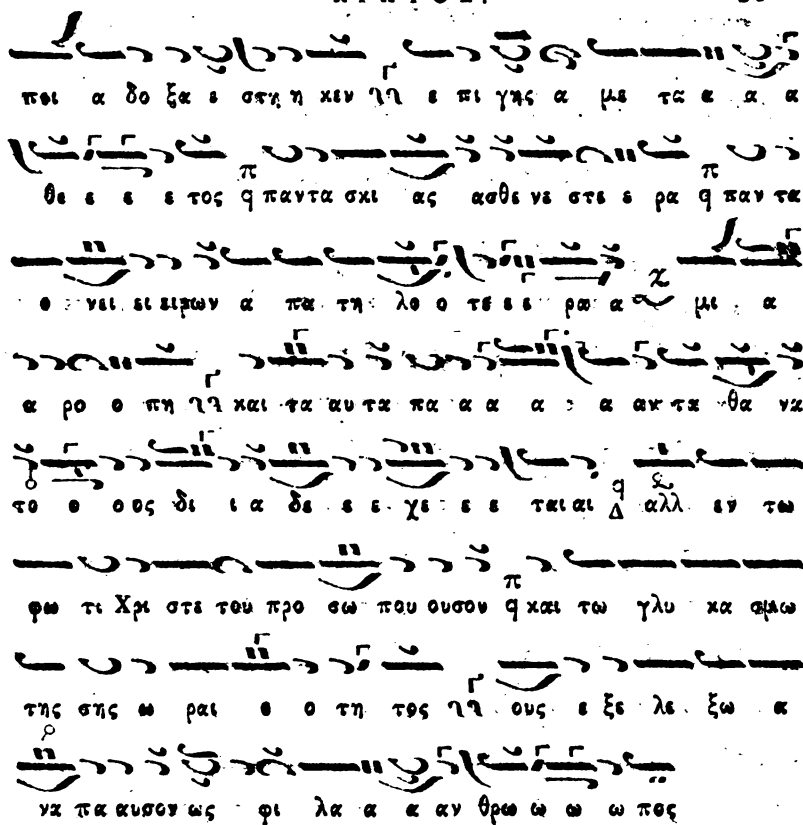 ποι α δο ξα ε στη η κεν ε πι γης α με τα α α α
θε ε ε ε τος παντα σκι ας ασθε νε στε ε ρα παν τα
ο νει ει ειρων α πα τη λο ο τε ε ε ρα α μι α
α ρο ο πη και τα αυ τα πα α α α α αν τα θα να
το ο ους δι ι α δε ε ε χε ε ε ται αι αλλ εν τω
φω τι Χρι στε του προ σω που ουσου και τω γλυ κα σμω
της σης ω ραι ο ο τη τος ους ε ξε λε ξω α
να πα αυσον ως φι λα α α αν θρω ω ω ω πος